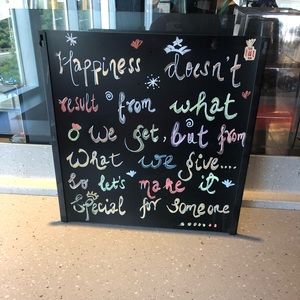 Happiness doesn't
result from what
we get, but from
what we give...
So let's make it
special for someone